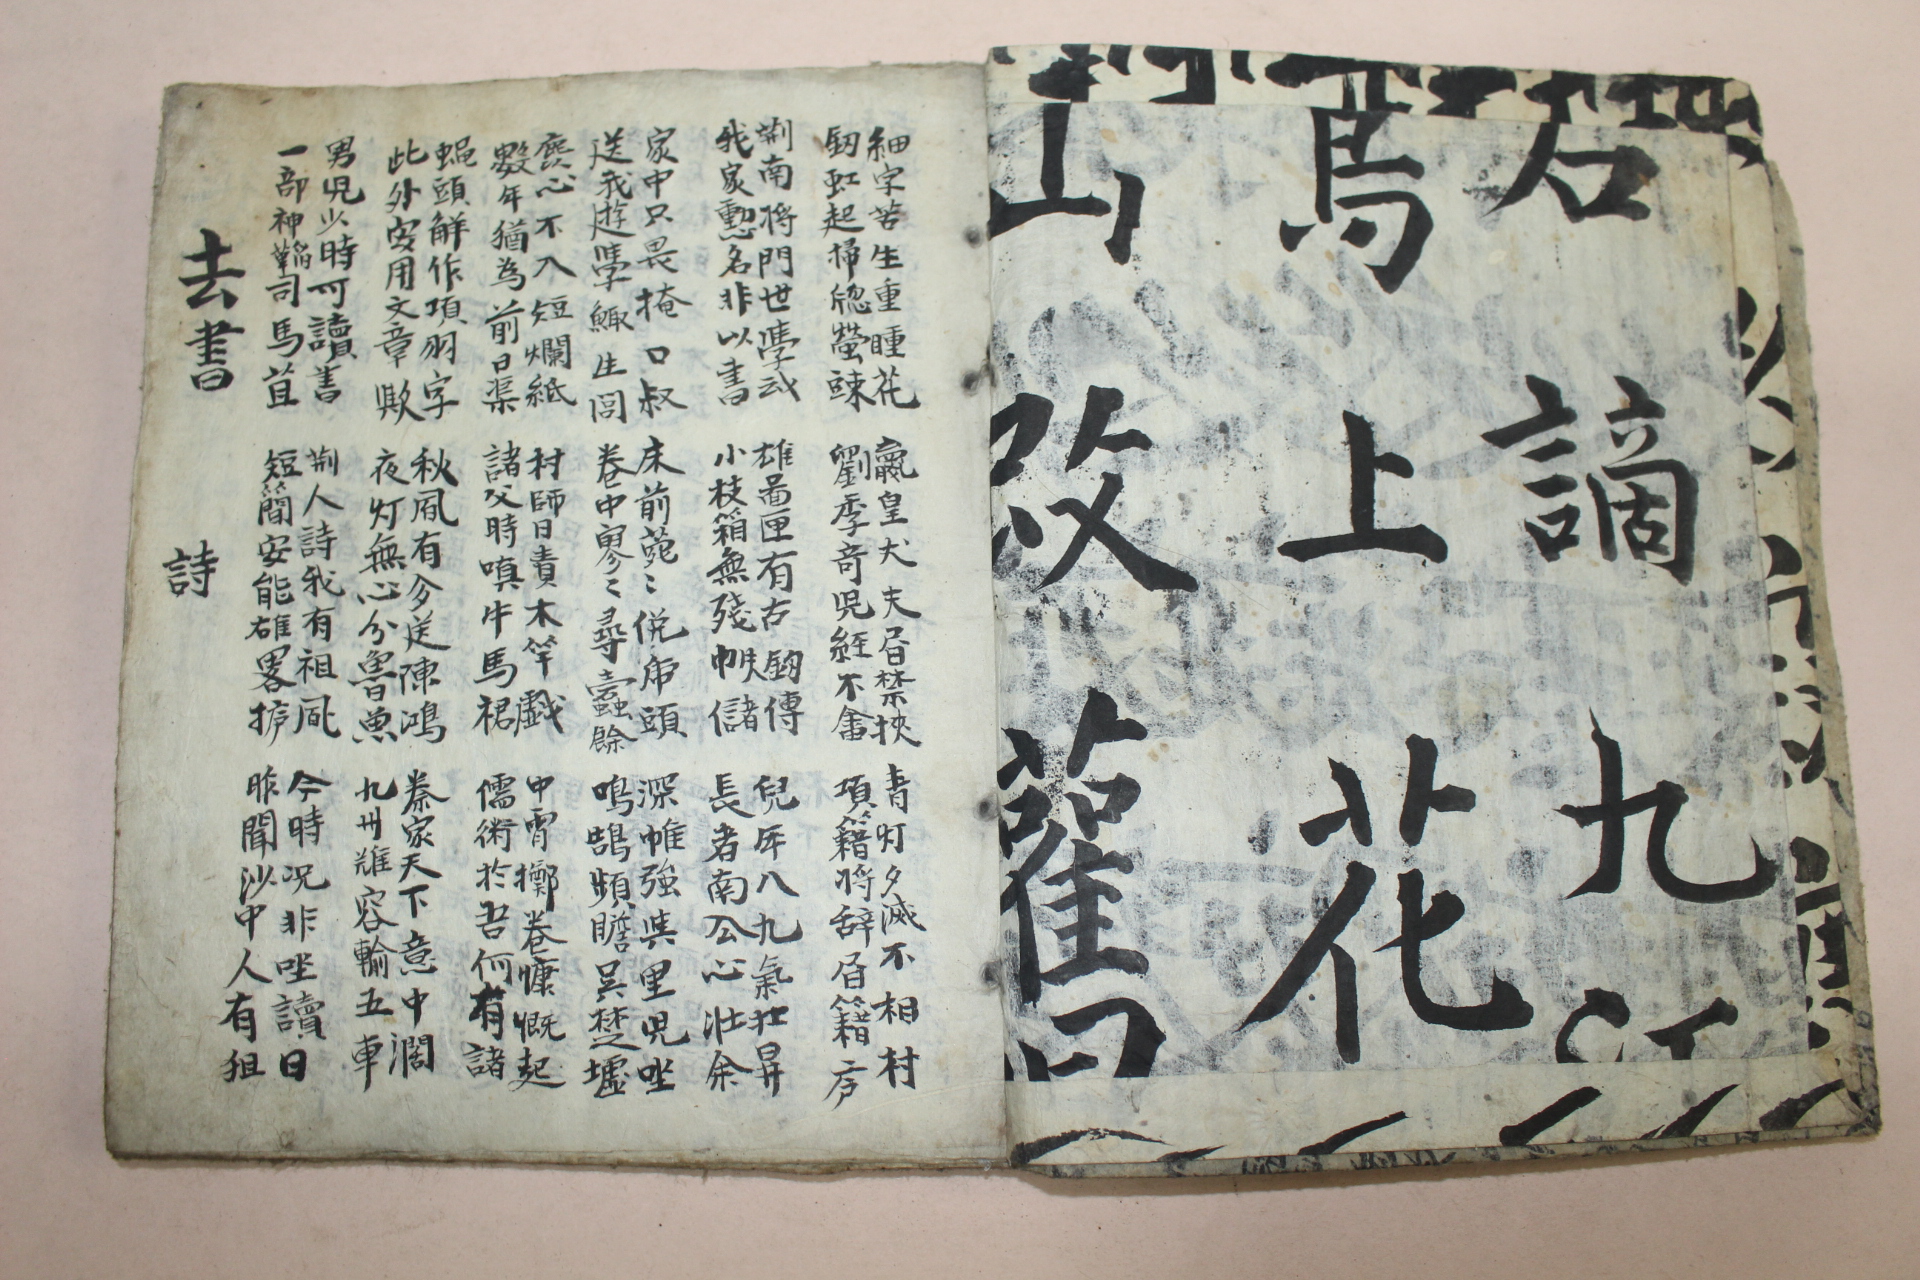 石謫九江
馬上花
山改舊
細字苦生重瞳花 嬴皇犬夫眉禁挾 青灯夕滅不相村
劒虹起掃窓螢竦 劉季奇児経不畬 項籍將辞眉籍序
荊南將門世學武 雄啚匣有古劒傳 兒年八九氣壮昇
我家勳名非以書 小枝箱無殘帙儲 長者南公心壮余
家中只畏掩口叔 床前菀〻侻帍頭 深帷強與里児坐
送我遊學鯫生閭 卷中寥〻尋蠹餘 鳴鵠頻瞻吴楚墟
麁心不入短爛紙 村師日責木竿戱 中霄擲卷慷慨起
數年猶為前日渠 諸父時嗔牛馬裾 儒術於吾何有諸
蝇頭觧作項羽字 秋風有分送陳鴻 秦家天下意中濶
此外安用文章歟 夜灯無心分魯魚 九州雖容輸五車
男児少時可讀書 荊人詩我有祖風 今時况非坐讀日
一部神韜司馬苴 短簡安能雄畧攄 昨聞沙中人有狙
去書 詩